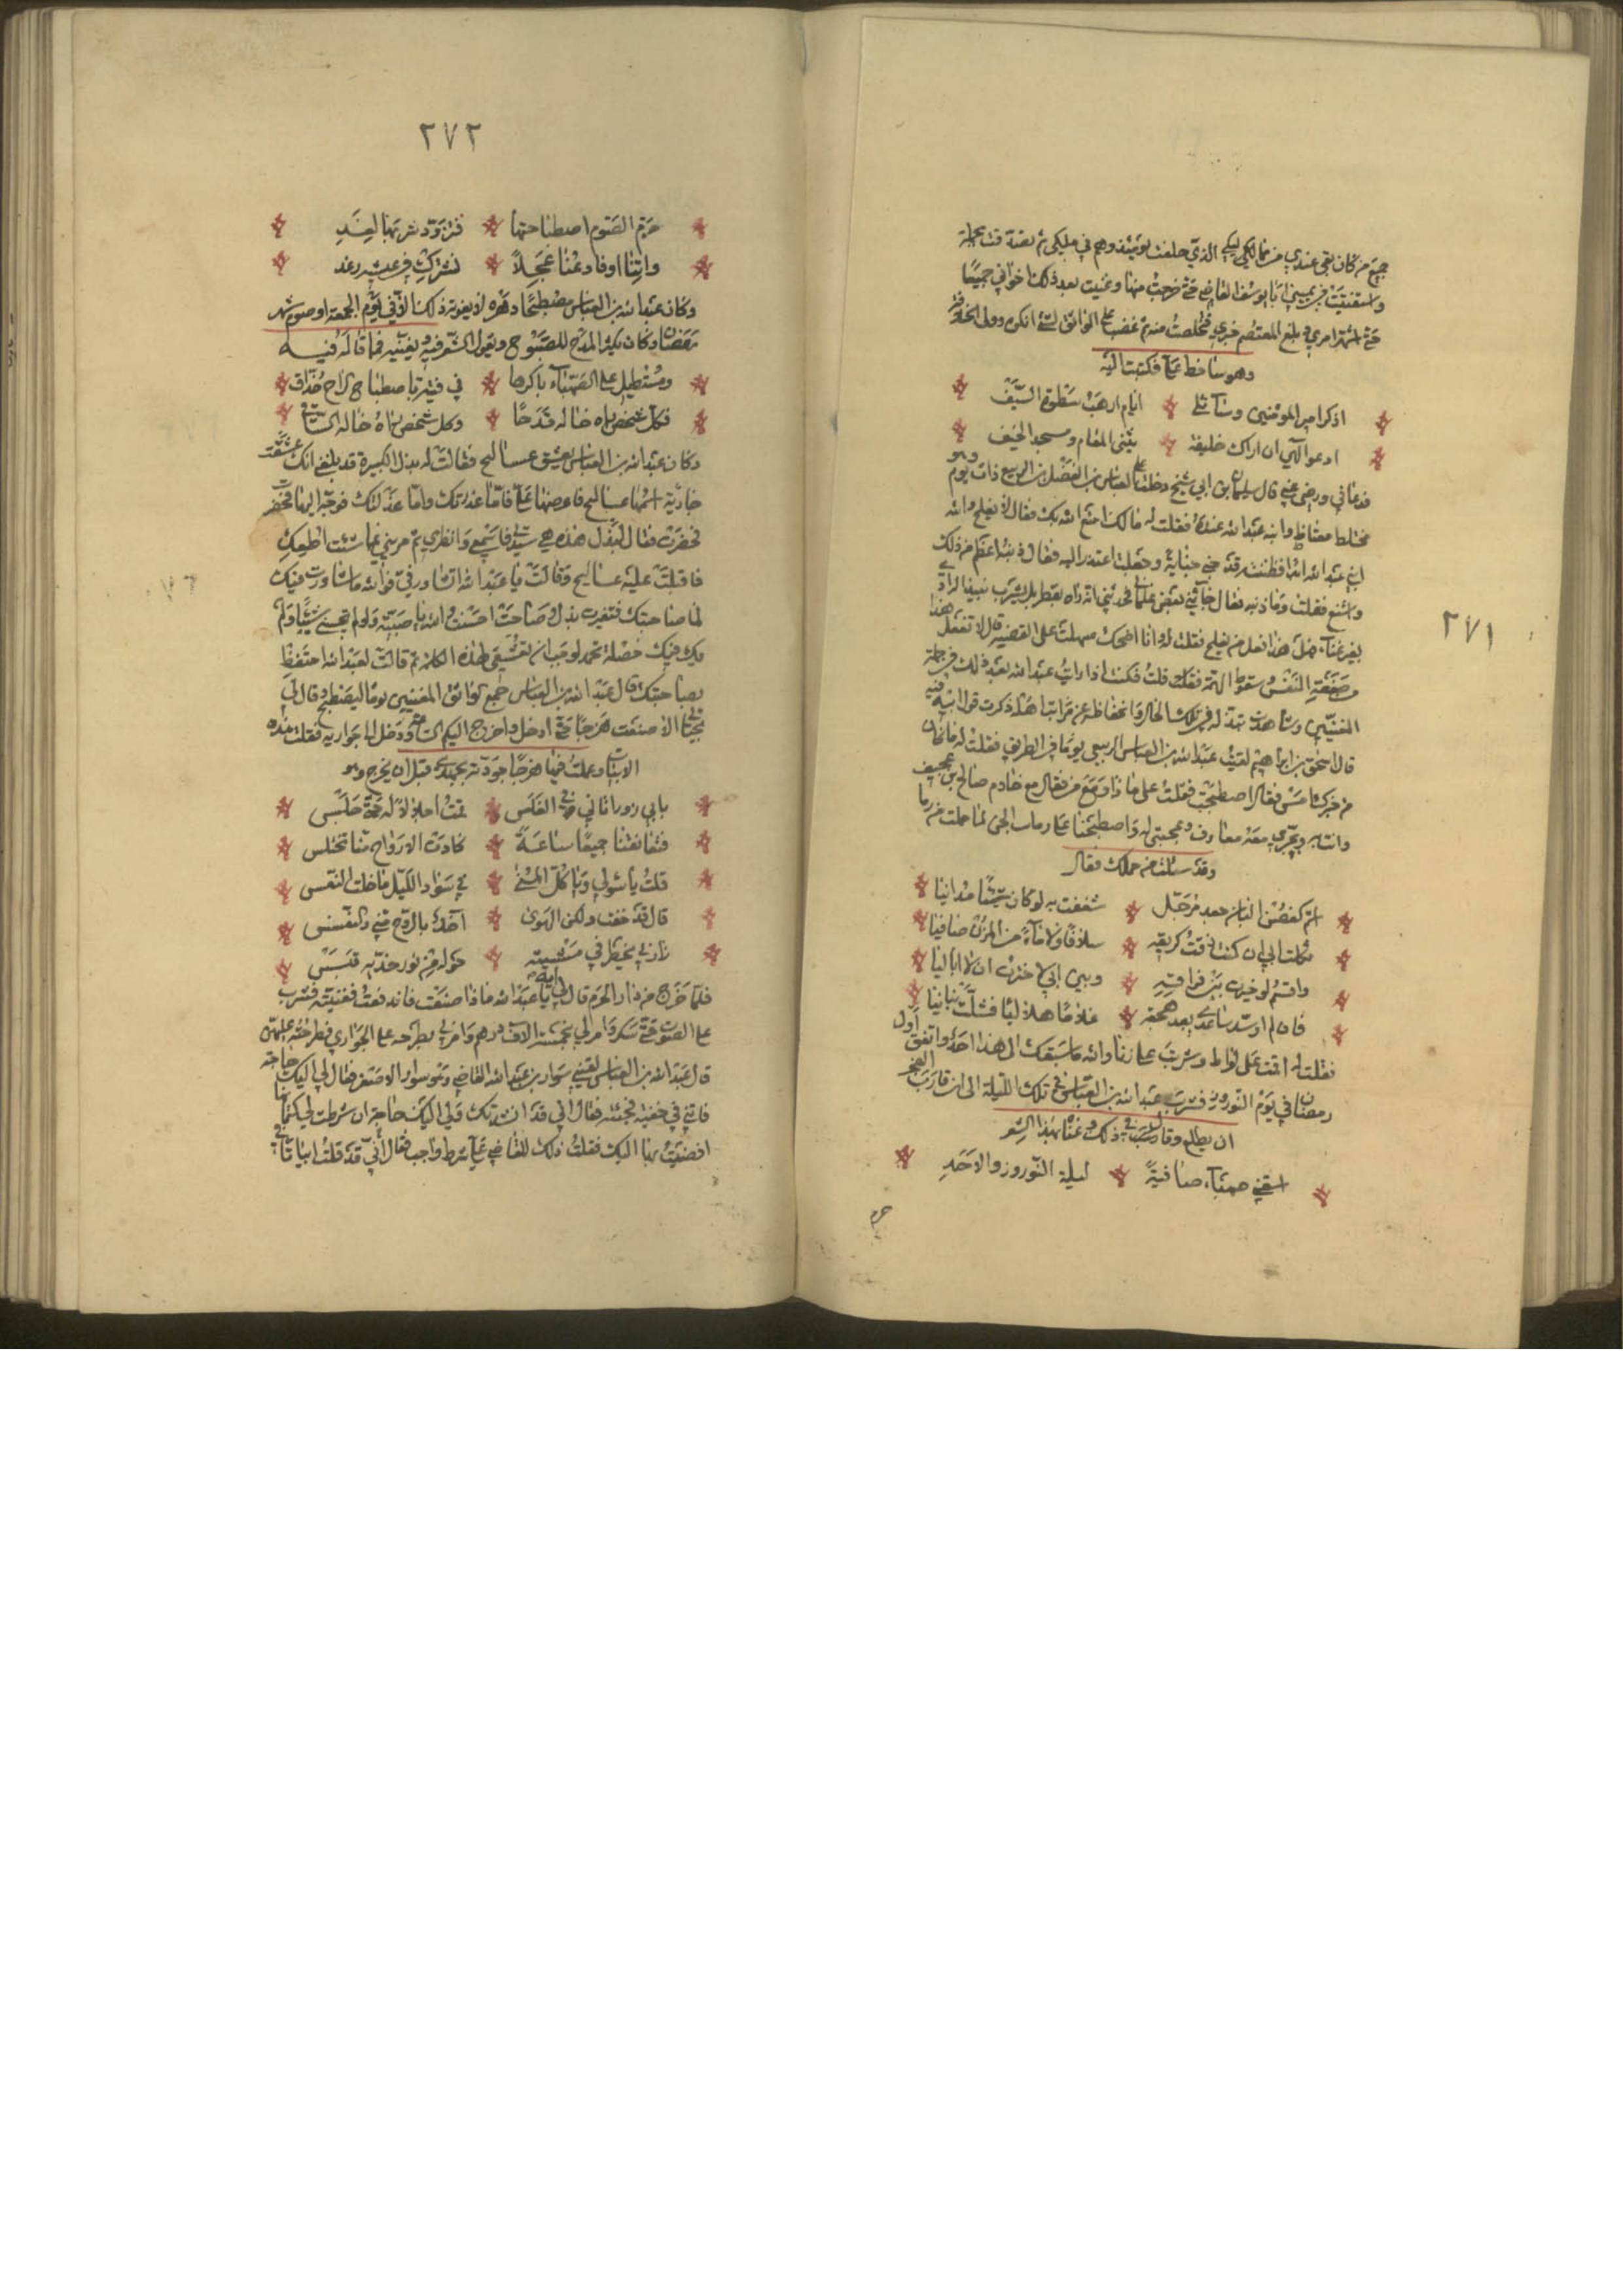 ٢٧١
جميع من كان بقي عندي من مماليكي الذي حلفت يومئذ وهم في ملكي ثم تصدقت بجملة
واستفتيت في يميني ابا يوسف القاضي حتى خرجت منها وغنيت بعد ذلك اخواني جميعا
حتى اشتهر امري وبلغ المعتصم خبري فتخلصت منه ثم غضب علي الواثق لشئ انكره وولى الخلافة
وهو ساخط علي فكتبت اليه
اذكر امير المؤمنين وسائلي ايام ارهب سطوة السيف
ادعو الهي ان اراك خليفة بين المقام ومسجد الخيف
فدعاني ورضي عني قال سليمان بن ابي شيخ دخلت على العباس بن الفضل بن الربيع ذات يوم وهو
مختلط مغتاظ وابنه عبد الله عنده فقلت له مالك امتع الله بك فقال لا يفلح والله
ابني عبد الله ابدا فظننته قد جنى جناية وجعلت اعتذر اليه فقال ذنبه اعظم من ذلك
واشنع فقلت وما ذنبه فقال جاءني بعض غلماني فحدثني انه راه بقطربل يشرب نبيذ الداذي
بغير غناء فهل هذا فعل من يفلح فقلت له وانا اضحك سهلت على القصة قال لا تفعل هذا
من ضعة النفس وسقوط الهمة فقال قلت فكنت اذا رايت عبد الله بعد ذلك في جملة
المغنيين وشاهدت تبذله في تلك الحال وانخفاضه عن مراتب اهله ذكرت قول ابيه فيه
قال اسحق بن ابراهيم لقيت عبد الله بن العباس الربيعي يوما في الطريق فقلت له ما كان
من خبرك امس فقال اصطبحت فقلت على ماذا ومع من فقال مع خادم صالح بن عجيف
وانت به وبخبري معه معارف ومحبتي له واصطبحنا على
وقد سالت من حملك فقال
ان كغصن البان جعد مرجل شغفت به لو كان شيئا مدانيا
ثكلت ابي ان كنت ذقت كريقه سلافا ولا ماء من المزن صافيا
واقسم لو خيرت بين فراقه وبين ابي لاخترت ان لا ابا ليا
فان لم اوسد ساعدي بعد هجعة غلاما هلاليا فشلت بنانيا
فقلت له اقمت على لواط وشربت على زنا والله ما سبقك الى هذا احد واتفق اول
رمضان في يوم النوروز فشرب عبد الله بن العباس في تلك الليلة الى ان قارب الفجر
ان يطلع وقال في ذلك وغنا بهذا الشعر
اسقني صهباء صافية ليلة النوروز والاحد
حرم
٢٧٢
حرم الصوم اصطباحتها فتزود شربها لغد
واتنا اوفادعنا عجلا نشترك في عيشه رغد
وكان عبد الله بن العباس مصطبحا دهره لا يفوته ذلك الا في يوم الجمعة او صوم شهر
رمضان وكان يكثر المدح للصبوح ويقول الشعر فيه ويغنيه فما قاله فيه
ومستطيل على الصهباء باكرها في فتية باصطباح الراح حذاق
فكل شخص راه خاله قدحا وكل شخص راه خاله الساقي
وكان عبد الله بن العباس يعشق عساليح فقالت له بذل الكبيرة قد بلغني انك عشقت
جارية اسمها عساليح فاعرضها علي فاما عذرتك واما عذلتك فوجه اليها فحضرت
فحضرت فقال لبذل هذه هي ستي فاسمعي وانظري ثم مريني بما شئت اطيعك
فاقبلت عليه عساليح وقالت يا عبد الله اتشاور في فوالله ما شاورت فيك
لما صاحبتك فنعرت بذل وصاحت احسنت والله يا صبية ولو لم تحسني شيئا ولم
يك فيك خصلة تحمد لوجب ان تعشقي لهذه الكلمة ثم قالت لعبد الله احتفظ
بصاحبتك قال عبد الله بن العباس جمع الواثق المغنيين يوما ليصطبح وقال لي
بحياتي الا صنعت هزجا حتى ادخل واخرج اليكم الساعة ودخل الى جواريه فقلت هذه
الابيات وعملت فيها هزجا جودته بجهدي قبل ان يخرج وهو
بابي زور اتاني في الغلس قمت اجلالا له حتى جلس
فتعانقنا جميعا ساعة كادت الارواح منا تختلس
قلت يا سولي ويا كل المنى في سواد الليل ما خلت النفس
قال قد خفت ولكن الهوى آخذ بالروح مني والنفس
زارني يخطر في مشيته حوله من نور خديه قبس
فلما خرج من دار الحرم قال لي ايه يا عبد الله ماذا صنعت فاندفعت فغنيته فشرب
على الصوت حتى سكر وامر لي بخمسة الاف درهم وامرني بطرحه على الجواري فطرحته عليهن
قال عبد الله بن العباس لقيني سوار بن عبد الله القاضي وهو سوار الاصغر فقال لي اليك حاجة
فاتني في خفية فجئته فقال لي قد انست بك ولي اليك حاجة ان شرطت لي كتمانها
افضيت بها اليك فقلت ذلك للقاضي علي شرط واجب فقال اني قد قلت ابياتا في